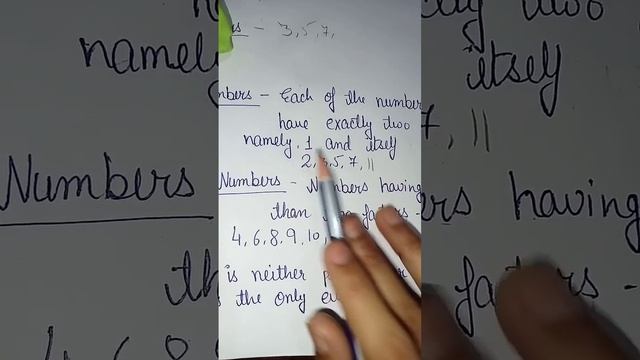 - 3,5,7,
- Each of the number
have exactly two
namely, 1 and itself
2, 5, 7, 11
Numbers - Numbers having
than factors -
4, 6, 8, 9, 10,
is neither
the only